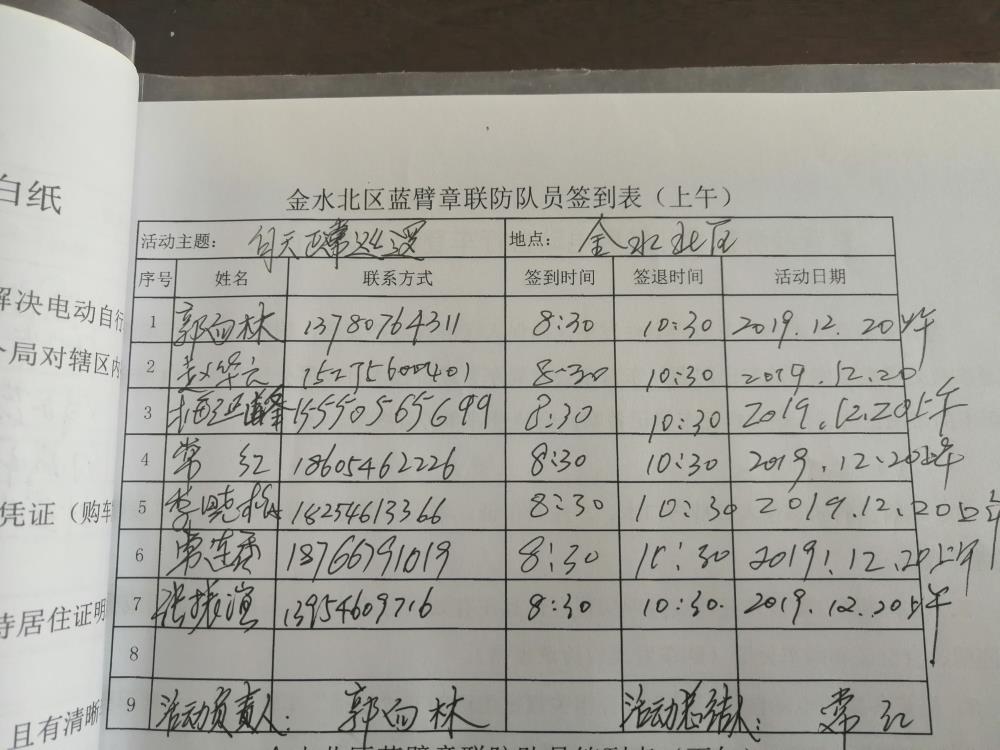 白纸
解决电动自行
个局对辖区内
凭证（购车
持居住证明
且有清晰
金水北区蓝臂章联防队员签到表（上午）
活动主题： 白天正常巡逻 地点： 金水北区
序号 姓名 联系方式 签到时间 签退时间 活动日期
1 郭向林 13780764311 8:30 10:30 2019.12.20上午
2 赵华云 15275600401 8-30 10:30 2019.12.20
3 15550565699 8:30 10:30 2019.12.20上午
4 常红 18605462226 8:30 10:30 2019.12.20上午
5 18254613366 8:30 10:30 2019.12.20上午
6 常连香 18766791019 8:30 10:30 2019.12.20上午
7 张振滨 13954609716 8:30 10:30. 2019.12.20上午
8
9 活动负责人： 郭向林 活动总结人： 常红